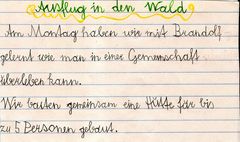 Ausflug in den Wald
Am Montag haben wir mit Brandolf
gelernt wie man in einer Gemeinschaft
überleben kann.
Wir bauten gemeinsam eine Hütte für bis
zu 5 Personen gebaut.